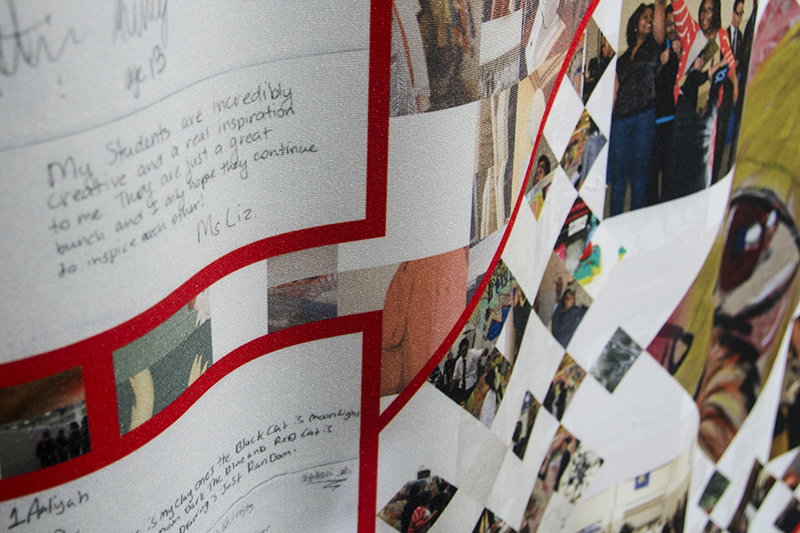 age 13
My Students are incredibly
creative and a real inspiration
to me. They are just a great
bunch and I only hope they continue
to inspire each other!
Ms Liz.
1 Aaliyah
is my clay ones the Black Cat is moonlight
moon Dark the Blue and Red Cat is
Drawing is Just RanDom.